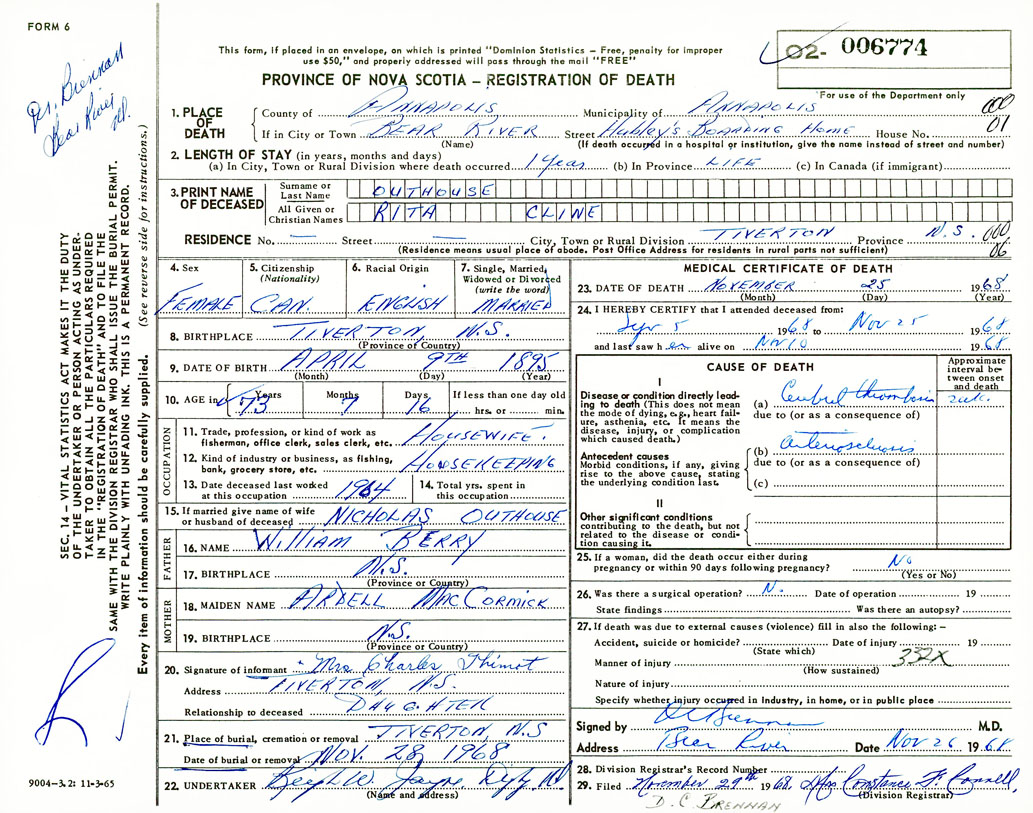 FORM 6
Dr. Brennan
Bear River
This form, if placed in an envelope, on which is printed "Dominion Statistics – Free, penalty for improper
use $50," and properly addressed will pass through the mail "FREE"
PROVINCE OF NOVA SCOTIA – REGISTRATION OF DEATH
02- 006774
For use of the Department only
000
01
1. PLACE OF DEATH
County of ANNAPOLIS Municipality of ANNAPOLIS
If in City or Town BEAR RIVER Street Hubley's BOARDING HOME House No.
(Name) (If death occurred in a hospital or institution, give the name instead of street and number)
2. LENGTH OF STAY (in years, months and days)
(a) In City, Town or Rural Division where death occurred 1 Year (b) In Province LIFE (c) In Canada (if immigrant)
3. PRINT NAME OF DECEASED
Surname or Last Name OUTHOUSE
All Given or Christian Names RITA CLINE
RESIDENCE No. — Street — City, Town or Rural Division TIVERTON Province N.S. 000
06
(Residence means usual place of abode. Post Office Address for residents in rural parts not sufficient)
4. Sex FEMALE
5. Citizenship (Nationality) CAN.
6. Racial Origin ENGLISH
7. Single, Married, Widowed or Divorced (write the word) MARRIED
8. BIRTHPLACE TIVERTON, N.S.
(Province of Country)
9. DATE OF BIRTH APRIL 9TH 1895
(Month) (Day) (Year)
10. AGE in Years 73 Months 7 Days 16 If less than one day old
hrs. or min.
OCCUPATION
11. Trade, profession, or kind of work as
fisherman, office clerk, sales clerk, etc. HOUSEWIFE.
12. Kind of industry or business, as fishing,
bank, grocery store, etc. HOUSEKEEPING
13. Date deceased last worked
at this occupation 1964
14. Total yrs. spent in
this occupation
15. If married give name of wife
or husband of deceased NICHOLAS OUTHOUSE
FATHER
16. NAME WILLIAM BERRY
17. BIRTHPLACE N.S.
(Province or Country)
MOTHER
18. MAIDEN NAME ARDELL MacCORMICK
19. BIRTHPLACE N.S.
(Province or Country)
20. Signature of informant Mrs Charles Thimot
Address TIVERTON, N.S.
Relationship to deceased DAUGHTER
21. Place of burial, cremation or removal TIVERTON, N.S
Date of burial or removal NOV. 28, 1968
22. UNDERTAKER
(Name and address)
MEDICAL CERTIFICATE OF DEATH
23. DATE OF DEATH NOVEMBER 25 1968
(Month) (Day) (Year)
24. I HEREBY CERTIFY that I attended deceased from:
5 1968 to Nov 25 1968
and last saw her alive on Nov 10 1968
CAUSE OF DEATH
Approximate interval between onset and death
I
Disease or condition directly leading
to death (This does not mean
the mode of dying, e.g., heart failure,
asthenia, etc. It means the
disease, injury, or complication
which caused death.)
(a) Cerebral thrombosis
due to (or as a consequence of)
Antecedent causes
Morbid conditions, if any, giving
rise to the above cause, stating
the underlying condition last.
(b) arteriosclerosis
due to (or as a consequence of)
(c)
II
Other significant conditions
contributing to the death, but not
related to the disease or condition
causing it.
25. If a woman, did the death occur either during
pregnancy or within 90 days following pregnancy? No
(Yes or No)
26. Was there a surgical operation? N. Date of operation 19
State findings Was there an autopsy?
27. If death was due to external causes (violence) fill in also the following: –
Accident, suicide or homicide? Date of injury 19
(State which)
Manner of injury 332X
(How sustained)
Nature of injury
Specify whether injury occurred in Industry, in home, or in public place
Signed by D C Brennan M.D.
Address Bear River Date Nov 26 1968.
28. Division Registrar's Record Number
29. Filed November 29th 1968, Mrs Constance F. Connell,
(Division Registrar)
D. C. BRENNAN
SEC. 14 – VITAL STATISTICS ACT MAKES IT THE DUTY
OF THE UNDERTAKER OR PERSON ACTING AS UNDERTAKER
TO OBTAIN ALL THE PARTICULARS REQUIRED
IN THE "REGISTRATION OF DEATH" AND TO FILE THE
SAME WITH THE DIVISION REGISTRAR WHO SHALL ISSUE THE BURIAL PERMIT.
WRITE PLAINLY WITH UNFADING INK. THIS IS A PERMANENT RECORD.
Every item of information should be carefully supplied. (See reverse side for instructions.)
9004-3.2: 11-3-65